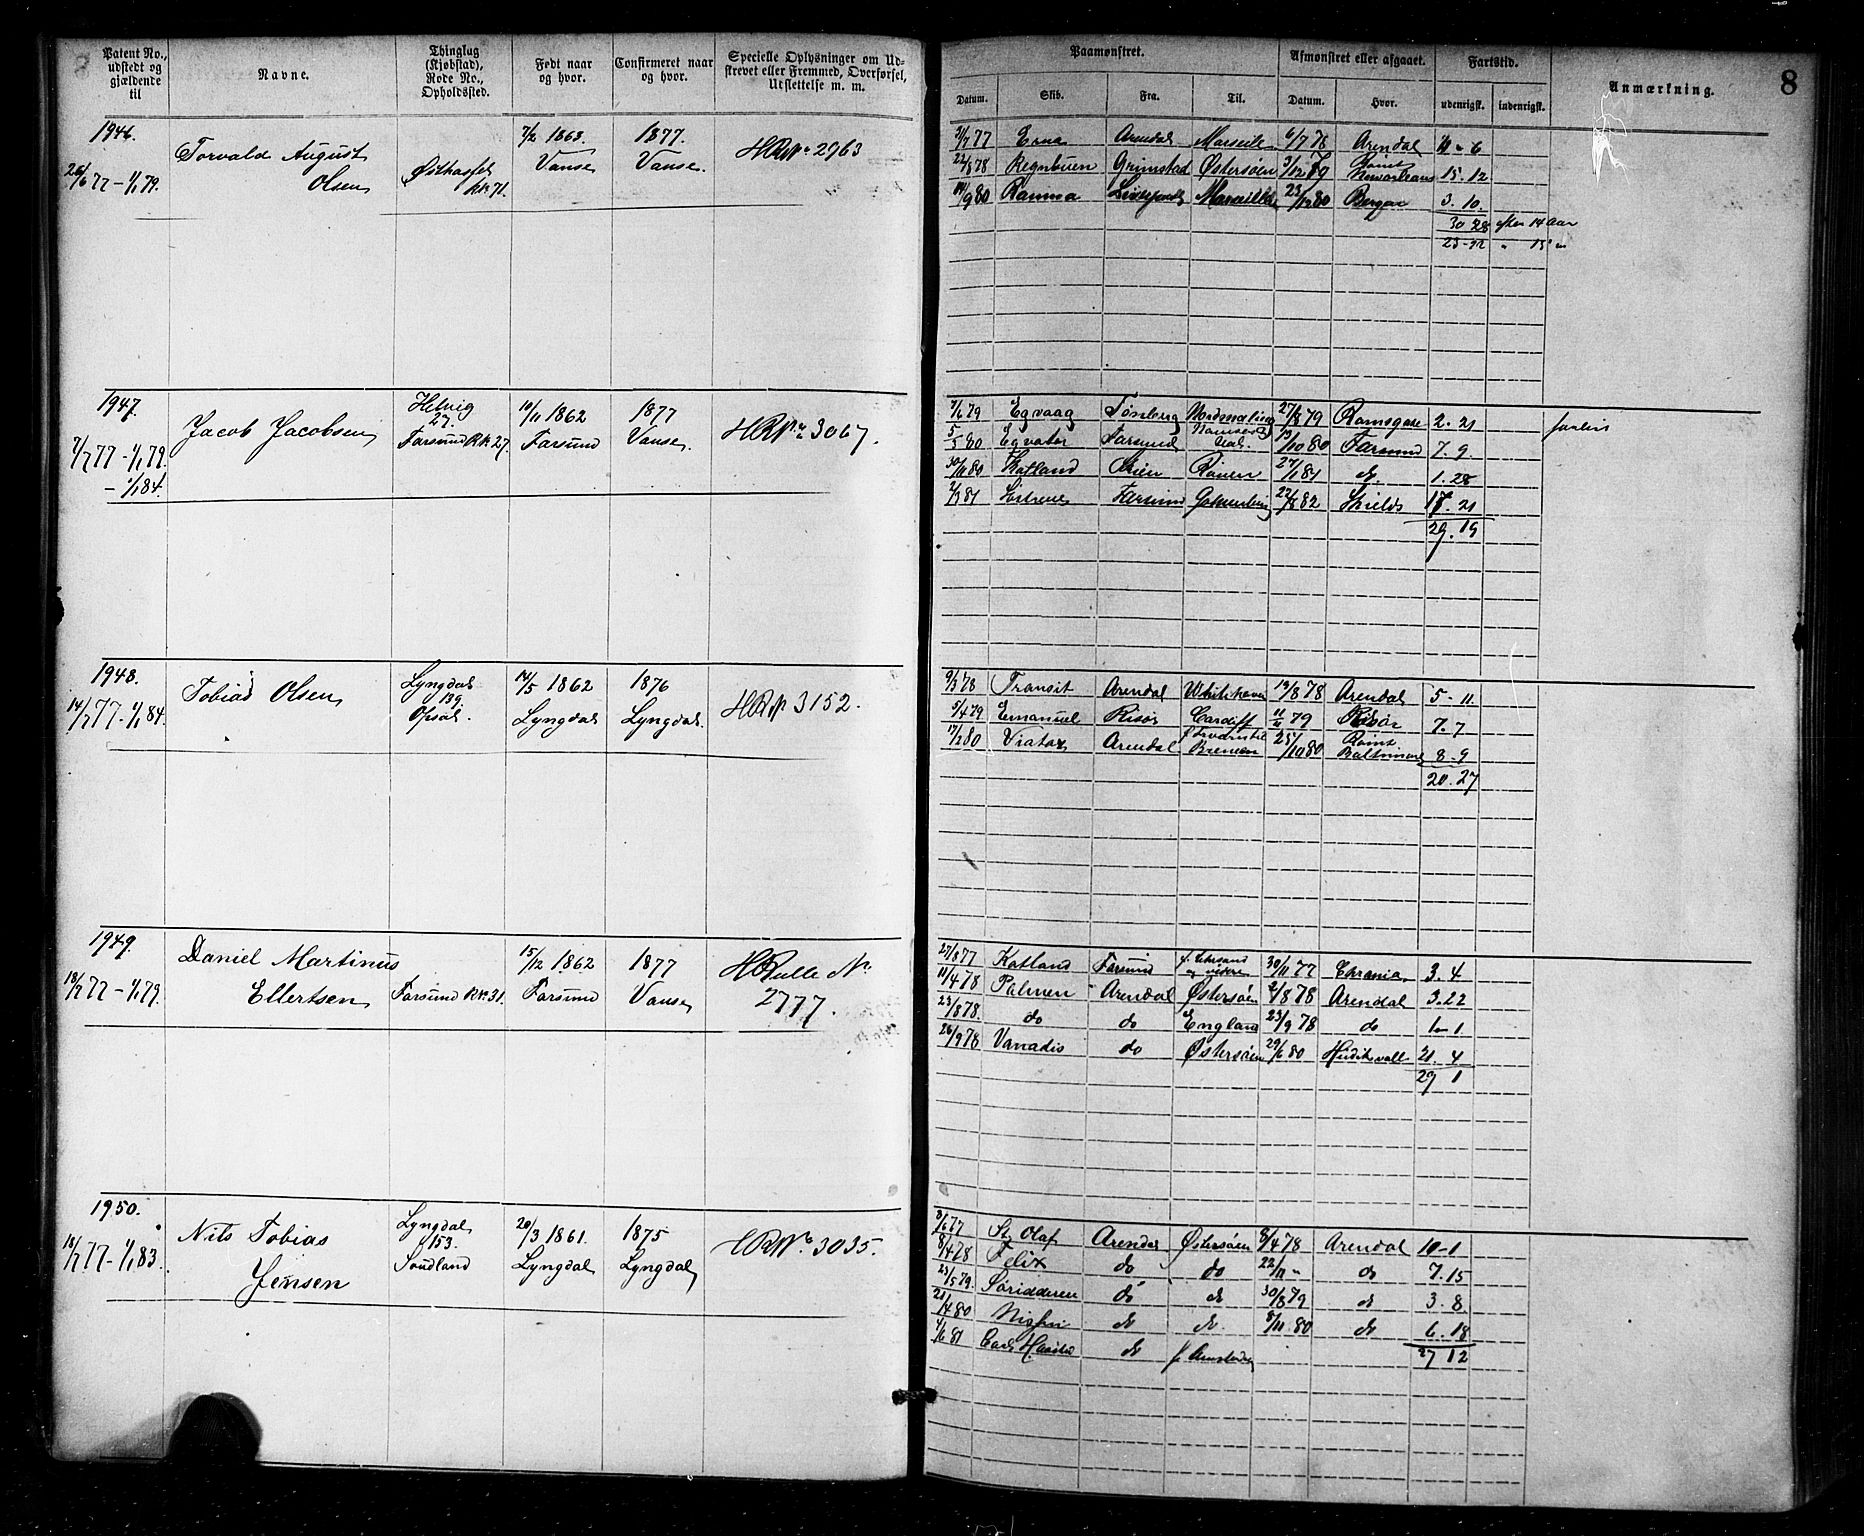 Patent No., udstedt og gjældende til
Navne.
Thinglag (Kjøbstad), Rode No., Opholdssted.
Født naar og hvor.
Confirmeret naar og hvor.
Specielle Oplysninger om Udstrevet eller Fremmed, Overførsel, Utslettelse m. m.
Paamønstret.
Datum.
Skib.
Fra.
Til.
Afmønstret eller afgaaet.
Datum.
Hvor.
Fartstid.
udenrigsk.
indenrigsk.
Anmærkning.
8
1946.
26/6 77 - 1/1 79.
Torvald August
Olsen
Østhassel
Rk 71.
7/2 1863.
Vanse
1877.
Vanse.
HR No 2963
31/7 77 Erna Arendal Marseille 6/7 78 Arendal 11 " 6
22/8 78 Regnbuen Grimstad Østersøen 3/12 79 Rømt
Neworleans 15. 12
14/9 80 Ramma Liverpool Marseille 23/12 80 Bergen 3. 10.
30 28 efter 14 Aar
23-22 " 15 "
1947.
7/7 77 - 1/1 79.
- 1/1 84.
Jacob Jacobsen
Helvig
27.
Farsund Rk. 27.
10/11 1862
Farsund
1877
Vanse
HR No 3067.
7/6 79 Egvaag Tønsberg Nordmaling 27/8 79 Ramsgate 2. 21
5/5 80 Egvator Farsund 13/10 80 Farsund 7. 9.
30/11 80 Katland Skien Rouen 27/1 81 do 1. 28
2/3 81 Farsund Gothenborg 22/8 82 Shields 17. 21
29. 19
1948.
14/7 77 - 1/1 84.
Tobias Olsen
Lyngdal
139.
Opsal.
14/5 1862
Lyngdal
1876
Lyngdal.
HR No 3152.
9/3 78 Transit Arendal Whitehaven 19/8 78 Arendal 5 - 11
5/4 79 Emanuel Risør Cardiff 11/11 79 Risør 7. 7
17/2 80 Viator Arendal
Bremen 25/10 80 Rømt
Baltimore 8. 9
20. 27
1949.
18/7 77 - 1/1 79.
Daniel Martinus
Ellertsen
Farsund Rk. 31.
15/12 1862
Farsund
1877
Vanse
HRulle No
2777.
27/8 77 Katland Farsund f. Chrsand
og videre 30/11 77 Chrania 3. 4
11/4 78 Palmen Arendal Østersøen 2/8 78 Arendal 3. 22
23/8 78. do do England 23/9 78 do 1 - 1
26/9 78 Vanadis do Østersøen 29/6 80 Hudiksvall 21. 4
29 1
1950.
18/7 77 - 1/1 83.
Nils Tobias
Jensen
Lyngdal
153.
Soudland
20/3 1861.
Lyngdal
1875
Lyngdal
HR No 3035.
3/6 77 St. Olaf Arendal Østersøen 8/4 78 Arendal 10 - 1
8/4 78 Felix do do 22/11 " do 7. 15
23/5 79. Søridderen do do 30/8 79 do 3. 8
21/4 80 do do. 8/11 80 do 6. 18
4/6 81 do f.
27 12